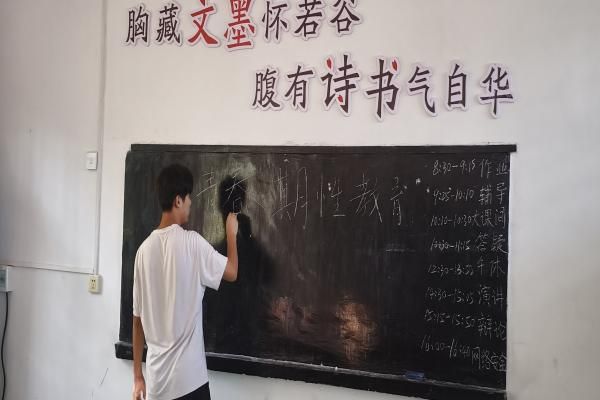 胸藏文墨怀若谷
腹有诗书气自华
青春期性教育
8:30-9:15 作业
9:25-10:10 辅导
10:10-10:30 大课间
10:30-11:15 答疑
12:30-13:50 午休
14:30-15:15 演讲
15:15-15:50 辩论
16:00-16:40 网络安全